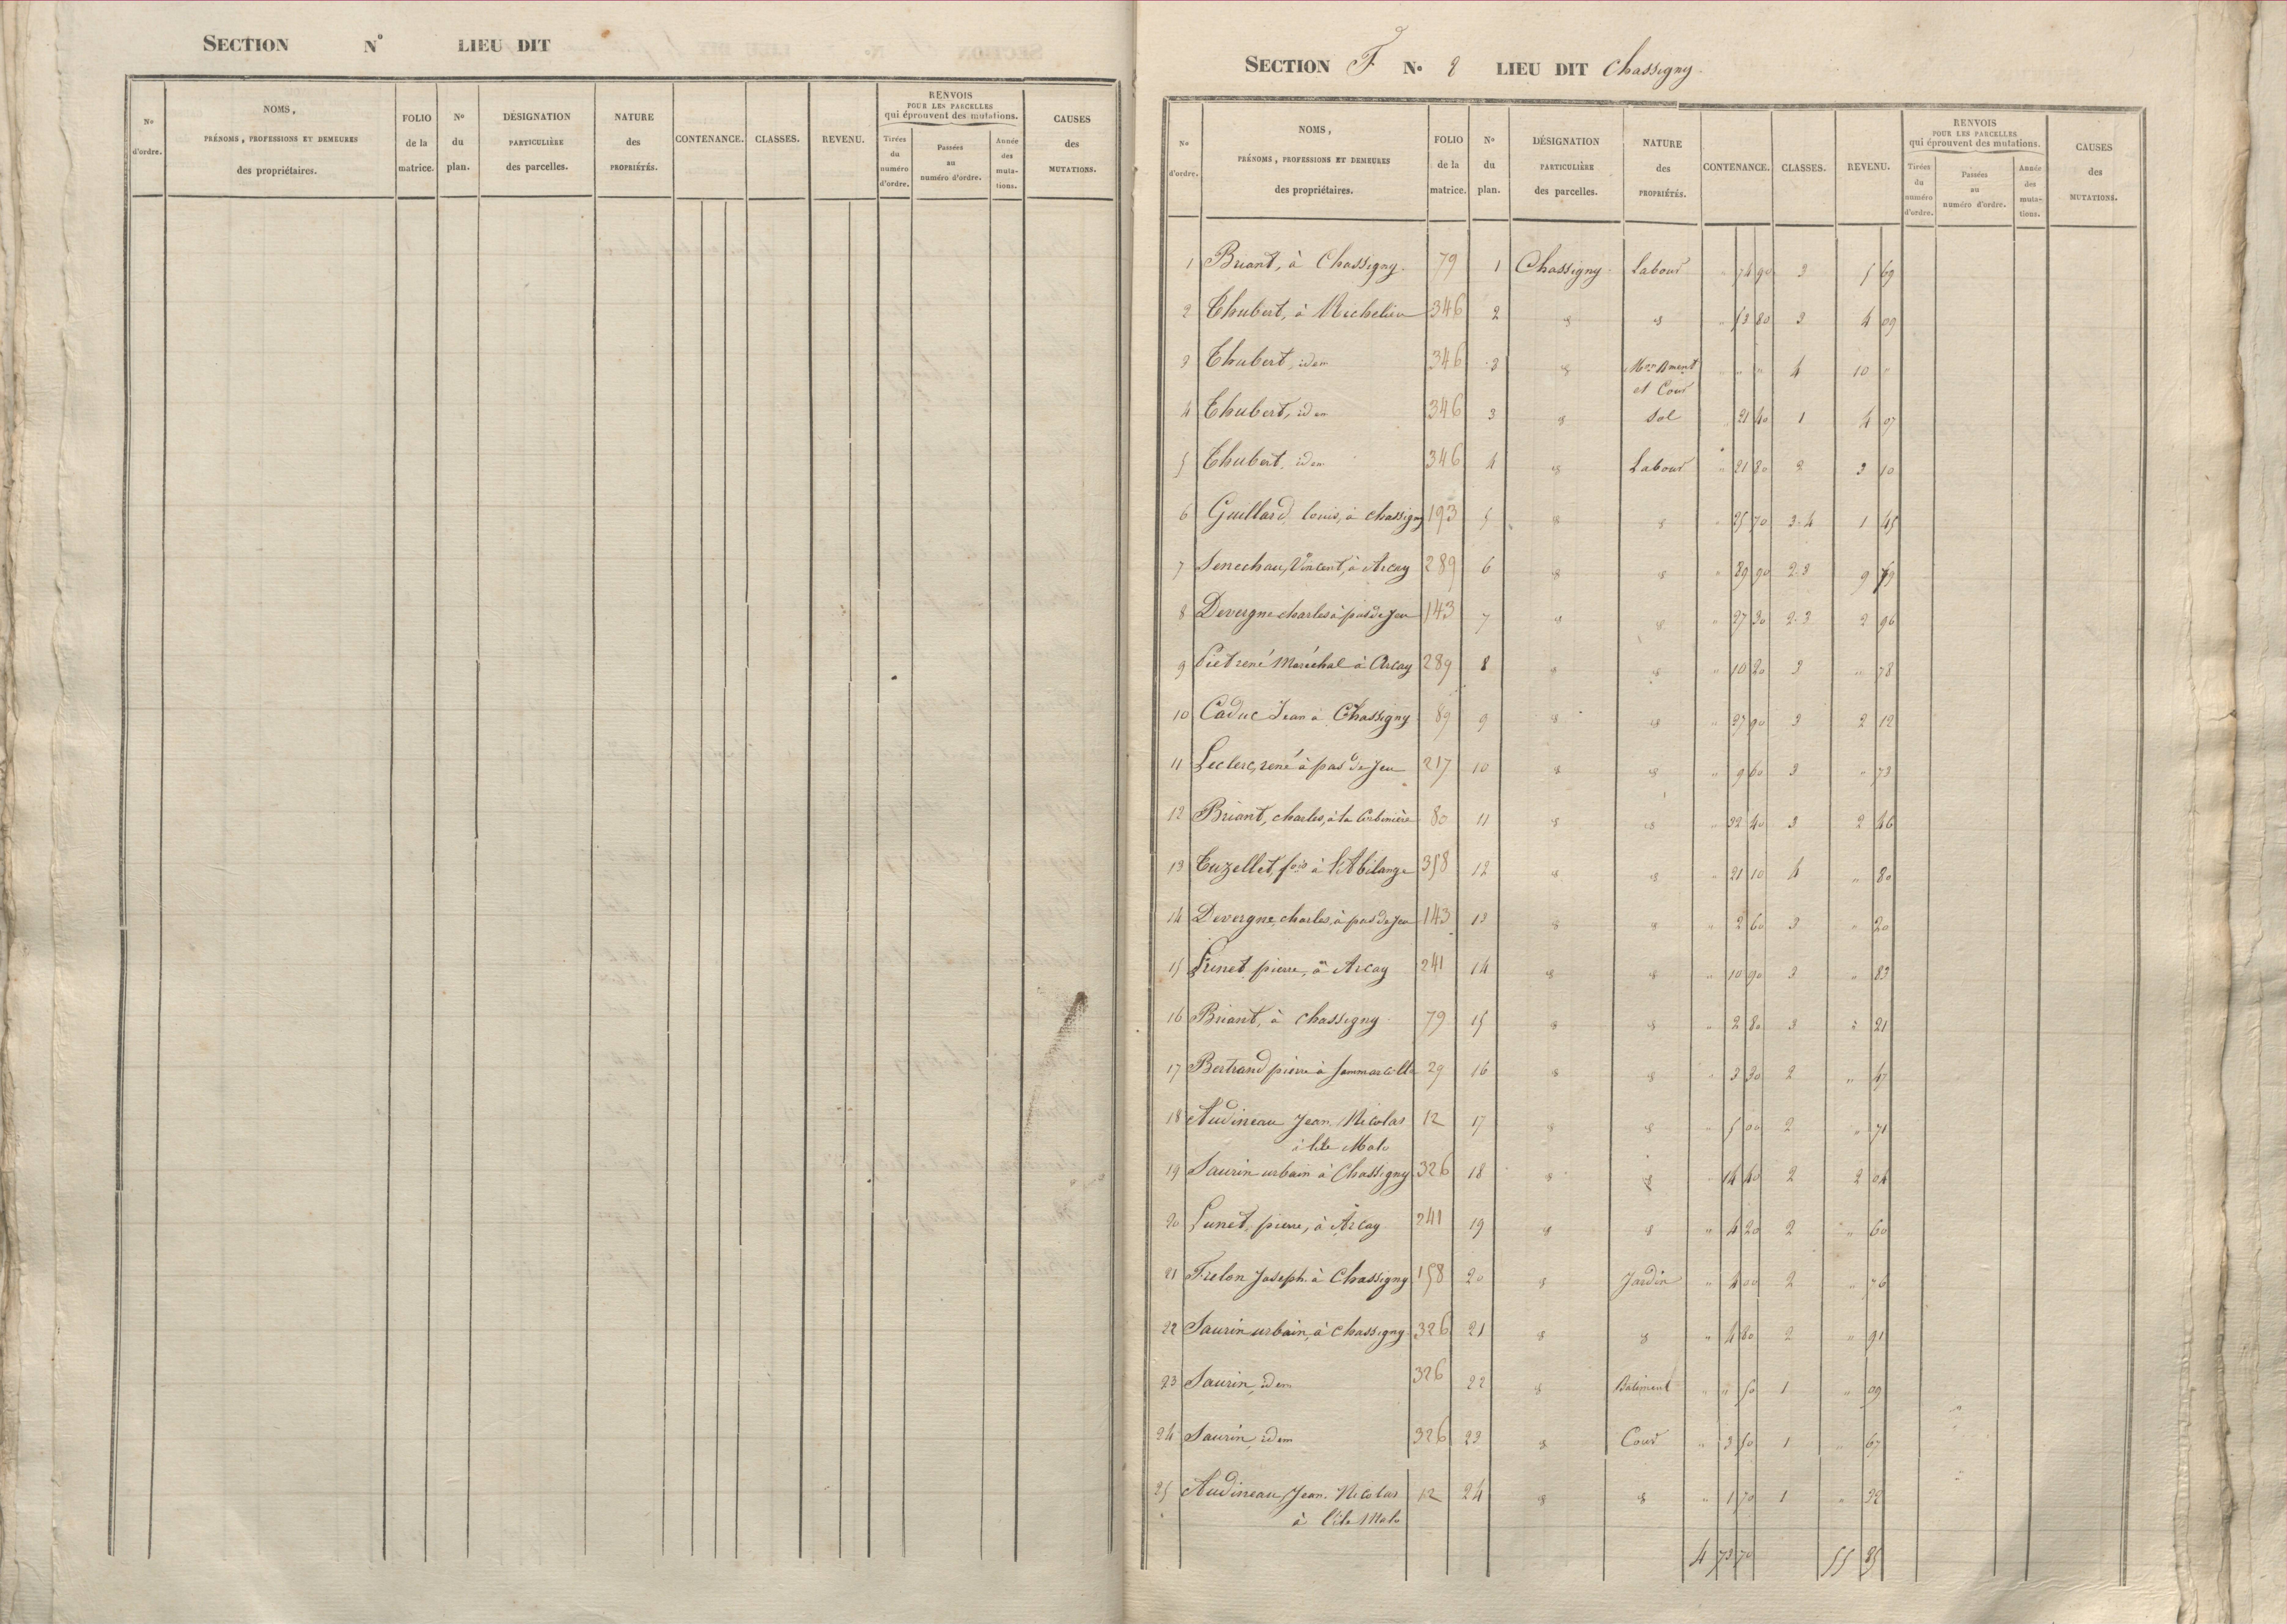 SECTION N° LIEU DIT
N° d'ordre. NOMS, PRÉNOMS, PROFESSIONS ET DEMEURES des propriétaires. FOLIO de la matrice. N° du plan. DÉSIGNATION PARTICULIÈRE des parcelles. NATURE des PROPRIÉTÉS. CONTENANCE. CLASSES. REVENU. RENVOIS POUR LES PARCELLES qui éprouvent des mutations. Tirées du numéro d'ordre. Passées au numéro d'ordre. Année des mutations. CAUSES des MUTATIONS.
SECTION F N° 2 LIEU DIT Chassigny
N° d'ordre. NOMS, PRÉNOMS, PROFESSIONS ET DEMEURES des propriétaires. FOLIO de la matrice. N° du plan. DÉSIGNATION PARTICULIÈRE des parcelles. NATURE des PROPRIÉTÉS. CONTENANCE. CLASSES. REVENU. RENVOIS POUR LES PARCELLES qui éprouvent des mutations. Tirées du numéro d'ordre. Passées au numéro d'ordre. Année des mutations. CAUSES des MUTATIONS.
1 Briant, à Chassigny 79 1 Chassigny Labour " 74 90 3 5 69
2 Thubert, à Richelieu 346 2 " 53 80 3 4 09
3 Thubert, idem 346 3 " " " 4 10 "
et Cour
4 Thubert, idem 346 3 Sol " 21 40 1 4 07
5 Thubert, idem 346 4 Labour " 21 80 2 3 10
6 Guillard louis, à chassigny 193 5 " 25 70 3-4 1 45
7 Senechau, Vincent, à Arcay 289 6 " 89 90 2-3 9
8 Devergne charles à pas de Jeu 143 7 " 27 30 2-3 2 96
9 Piet rené Maréchal à Arcay 289 8 " 10 20 3 " 78
10 Caduc Jean à Chassigny 89 9 " 27 90 3 2 12
11 Leclerc, rené à pas de Jeu 217 10 " 9 60 3 " 73
12 Briant, charles, à la 80 11 " 32 40 3 2 46
13 Tuzellet, fois à l'Abilange 358 12 " 21 10 4 " 80
14 Devergne, charles, à pas de Jeu 143 13 " 2 60 3 " 20
15 pierre, à Arcay 241 14 " 10 90 3 " 83
16 Briant, à chassigny 79 15 " 2 80 3 " 21
17 Bertrand pierre à Sammarcolle 29 16 " 3 30 2 " 47
18 Audineau Jean Nicolas 12 17 " 5 00 2 " 71
à l'ile Malo
19 Saurin urbain à Chassigny 326 18 " 14 40 2 2 04
20 pierre, à Arcay 241 19 " 4 20 2 " 60
21 Frelon Joseph à Chassigny 158 20 Jardin " 4 00 2 " 76
22 Saurin urbain, à chassigny 326 21 " 4 80 2 " 91
23 Saurin, idem 326 22 Batiment " " 50 1 " 09
24 Saurin, idem 326 23 Cour " 3 50 1 " 67
25 Audineau, Jean Nicolas 12 24 " 1 70 1 " 32
à l'ile Malo
4 73 70 55 85